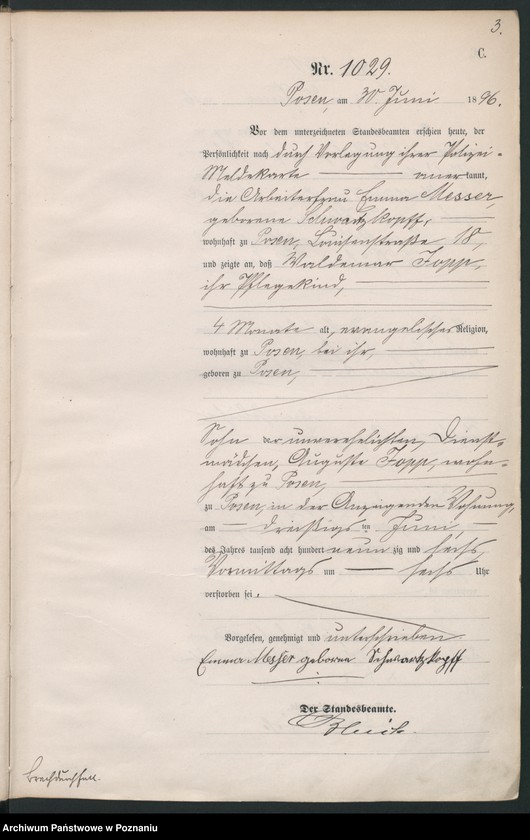 3.
C.
Nr. 1029.
Posen, am 30. Juni 1896.
Vor dem unterzeichneten Standesbeamten erschien heute, der
Persönlichkeit nach durch Vorlegung ihrer Polizei-
Meldekarte anerkannt,
die Arbeiterfrau Emma Messer
geborene Schwartzkopff,
wohnhaft zu Posen, Louisenstraße 18,
und zeigte an, daß Waldemar Topp,
ihr Pflegekind,
4 Monate alt, evangelischer Religion,
wohnhaft zu Posen, bei ihr,
geboren zu Posen,
Sohn der unverehelichten, Dienst-
mädchen, Auguste Topp, wohn-
haft zu Posen,
zu Posen, in der Anzeigenden Wohnung,
am dreißigsten Juni
des Jahres tausend acht hundert neunzig und sechs
Vormittags um sechs Uhr
verstorben sei.
Vorgelesen, genehmigt und unterschrieben
Emma Messer geborene Schwartzkopff
Der Standesbeamte.
Brechdurchfall.
Archiwum Państwowe w Poznaniu